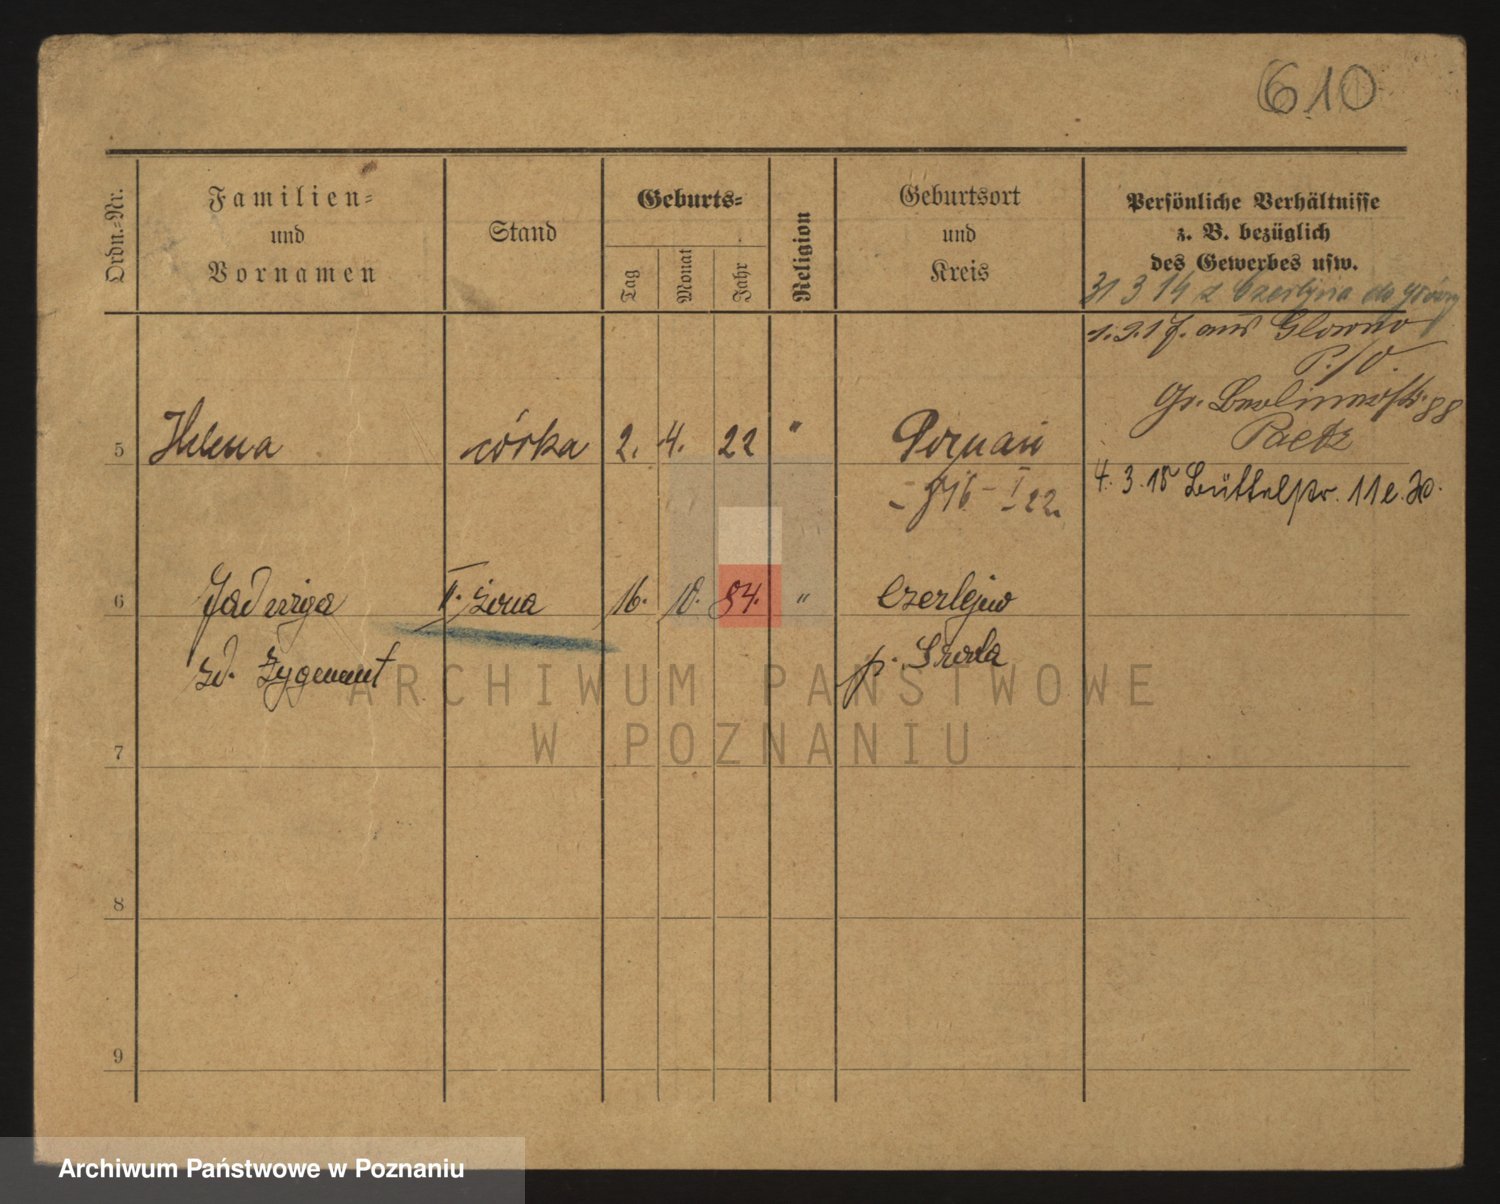 610
Ordn.-Nr.
Familien-
und
Vornamen
Stand
Geburts-
Tag
Monat
Jahr
Religion
Geburtsort
und
Kreis
Persönliche Verhältnisse
z. B. bezüglich
des Gewerbes usw.
31 3 14 z Czerlejna do
1.9.17. aus Glowno
P./O.
Gr. Berlinerstr. 88
Paetz
5 Helena córka 2. 4. 22 " Poznań
4. 3. 18 Büttelstr. 11 e.
- 846 - I 22.
6 Jadwiga II. żona 16. 10. 84. " Czerlejno
zd. Zygmant p. Środa
7
8
9
ARCHIWUM PAŃSTWOWE
W POZNANIU
Archiwum Państwowe w Poznaniu